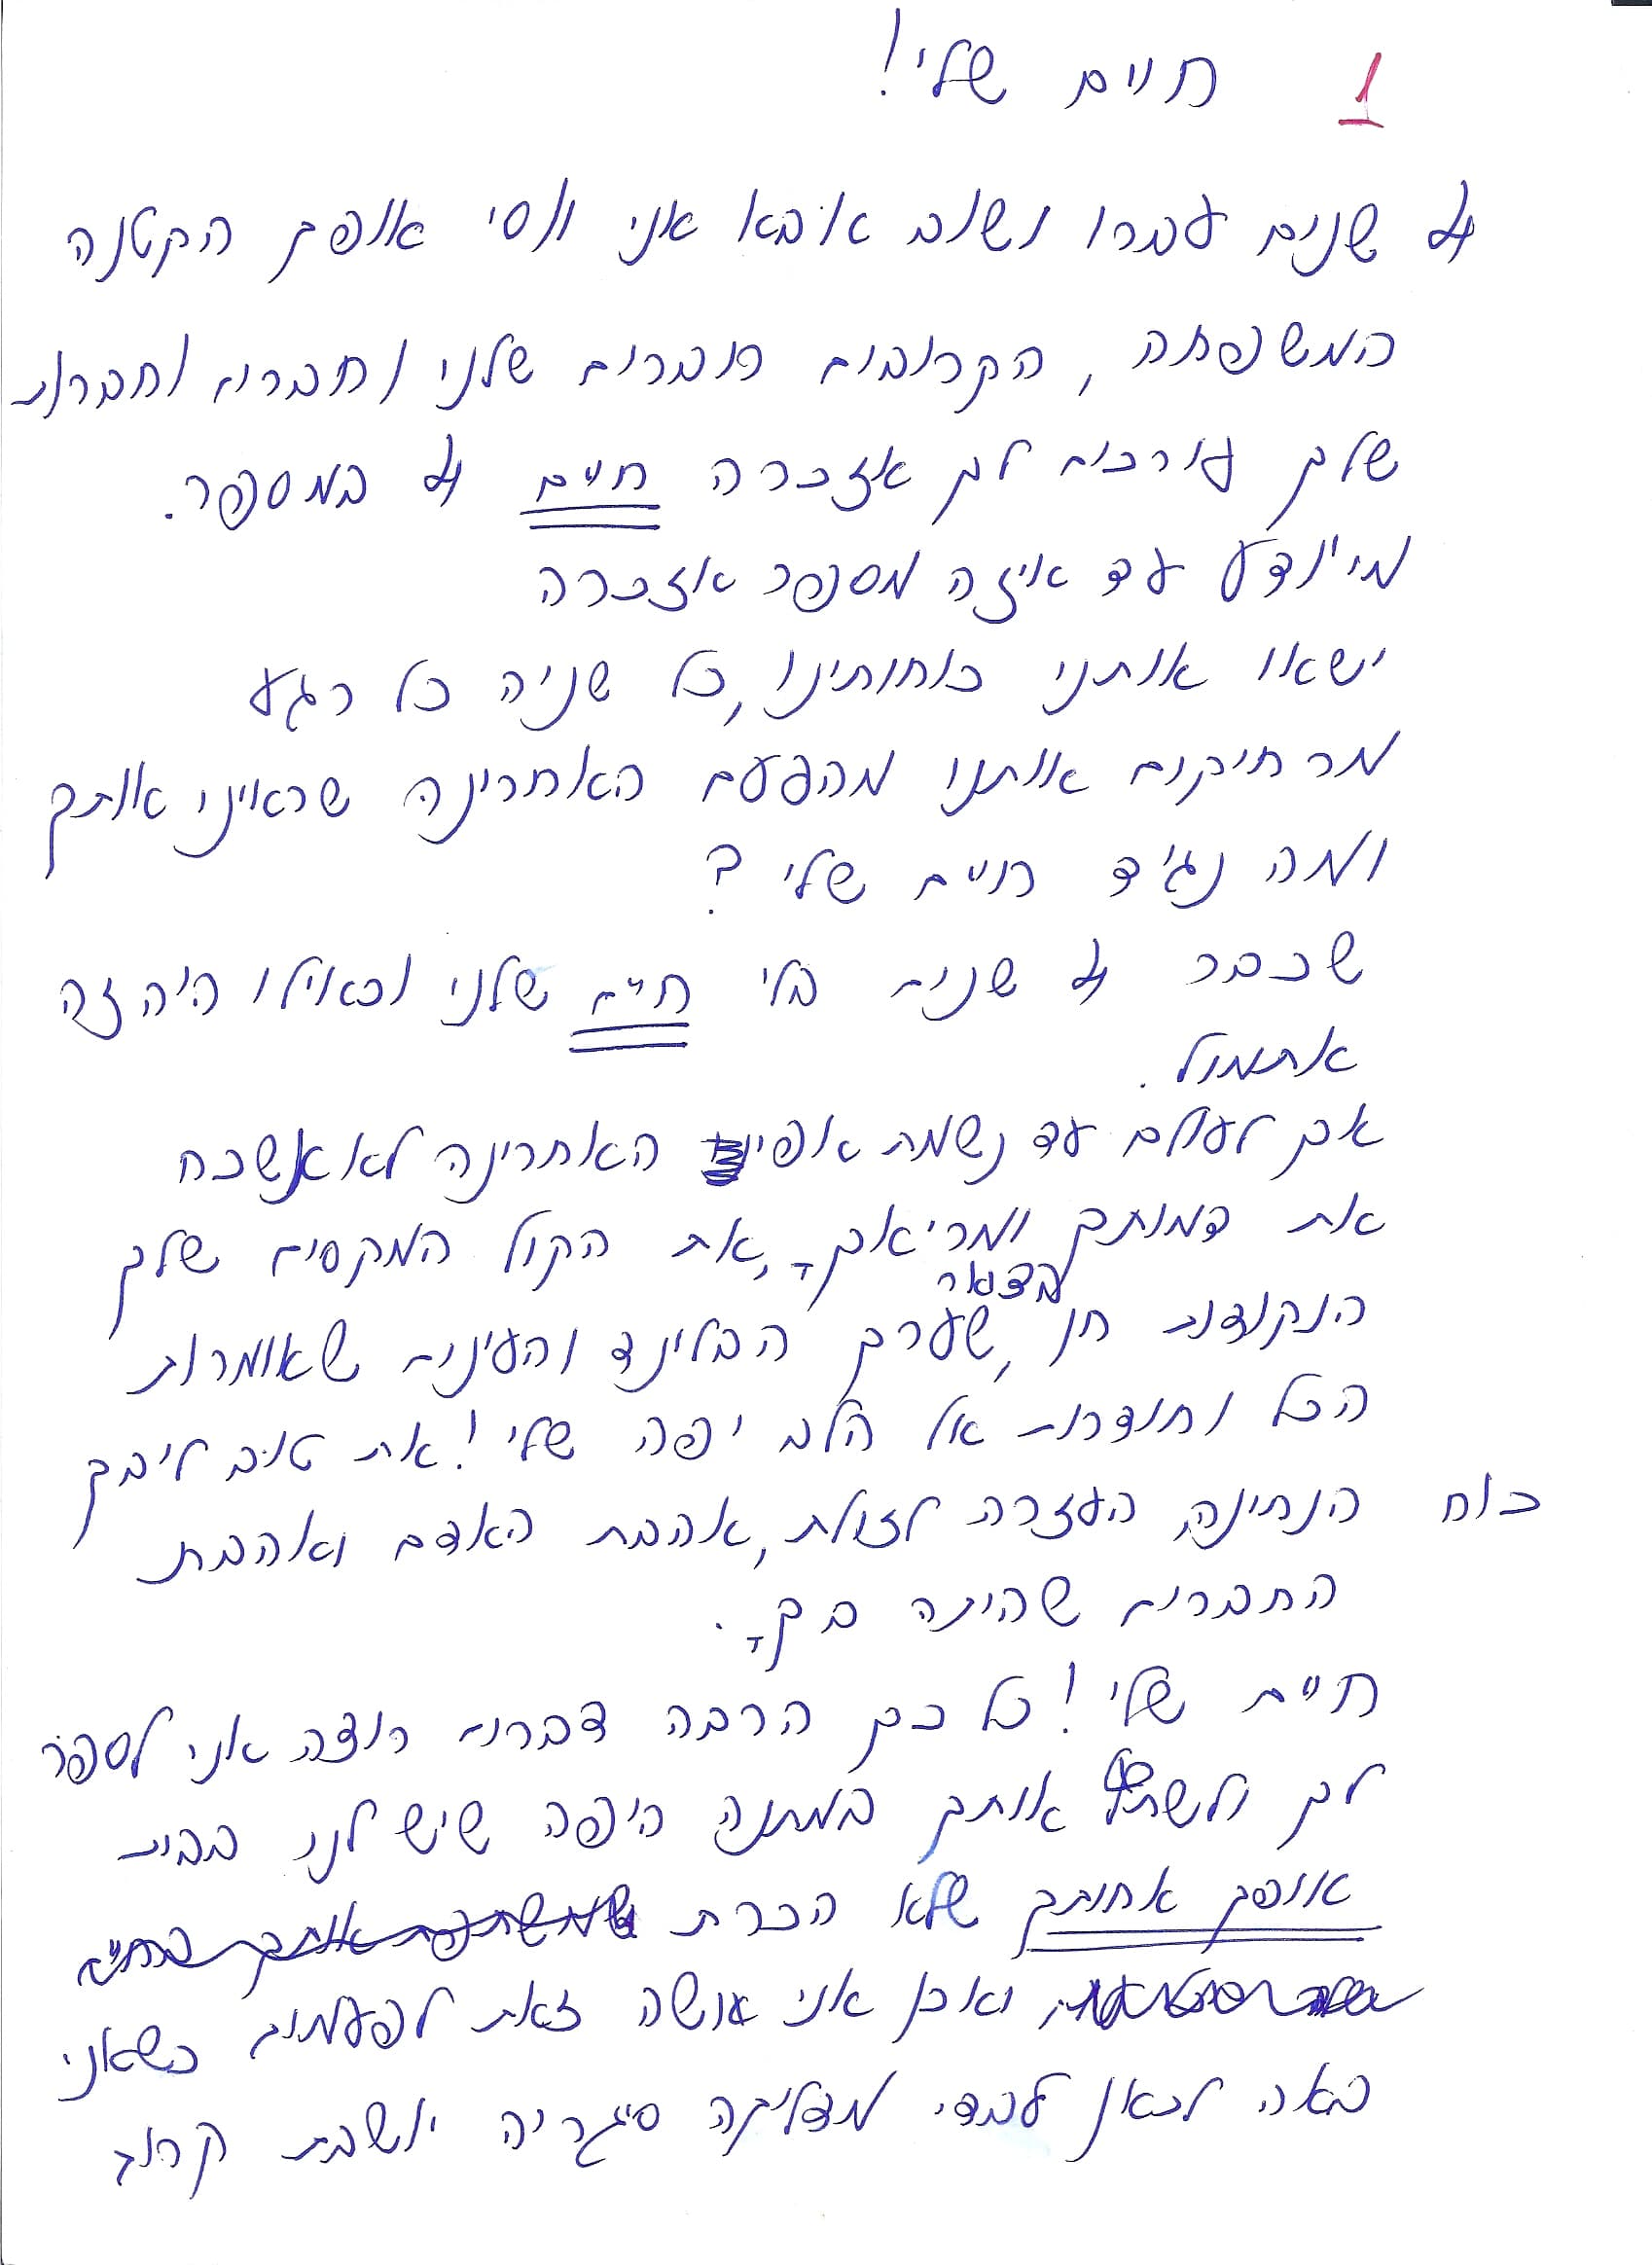 1 חיים שלי!
4 שנים עברו ושוב אבא אני וסי אופק הקטנה
המשפחה, הקרובים חברים שלנו וחברים וחברות
שלך עורכים לך אזכרה חיים 4 במספר.
מי יודע עד איזה מספר אזכרה
ישאו אותנו כוחותינו, כל שניה כל רגע
מרחיקים אותנו מהפעם האחרונה שראינו אותך
ומה נגיד חיים שלי?
שכבר 4 שנים בלי חיים שלנו וכאילו היה זה
אתמול.
אך לעולם עד נשמת אפי האחרונה לא אשכח
את דמותך ומריאך, את הקול המקסים שלך
הנקודות חן בצואר, שערך הבלונד והעינים שאומרות
הכל וחודרות אל הלב יפה שלי! את טוב ליבך
כוח הנתינה, העזרה לזולת, אהבת האדם ואהבת
החברים שהיתה בך.
חיים שלי! כל כך הרבה דברים רוצה אני לספר
לך ולשתף אותך במתנה היפה שיש לנו בבית
אופק אחותך שלא הכרת
ואכן אני עושה זאת לפעמים כשאני
באה לכאן לבדי מדליקה סיגריה יושבת קרוב